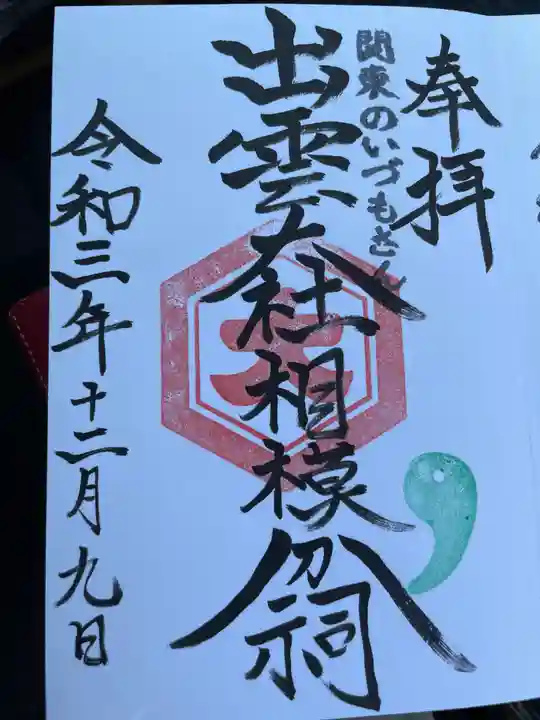 奉拝
関東のいづもさん
出雲大社相模分祠
大
令和三年十二月九日